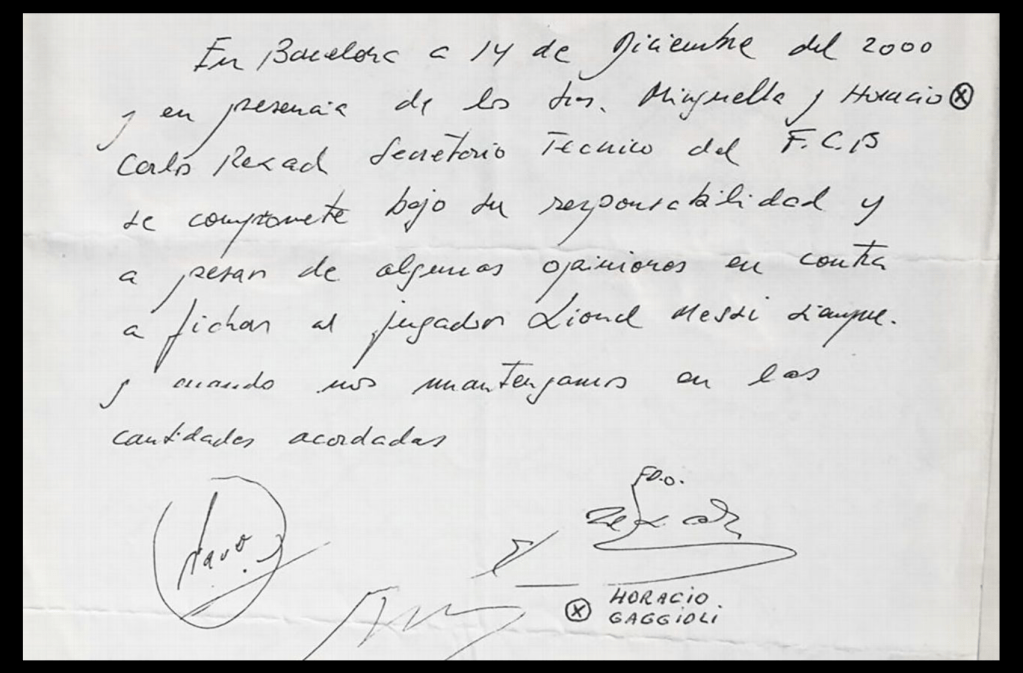 En Barcelona a 14 de Diciembre del 2000
y en presencia de los Srs. Minguella y Horacio ⓧ
Carlos Rexach Secretario Tecnico del F.C.B
se compromete bajo su responsabilidad y
a pesar de algunas opiniones en contra
a fichar al jugador Lionel Messi siempre.
y cuando nos mantengamos en las
cantidades acordadas
FD.O.
ⓧ HORACIO
GAGGIOLI